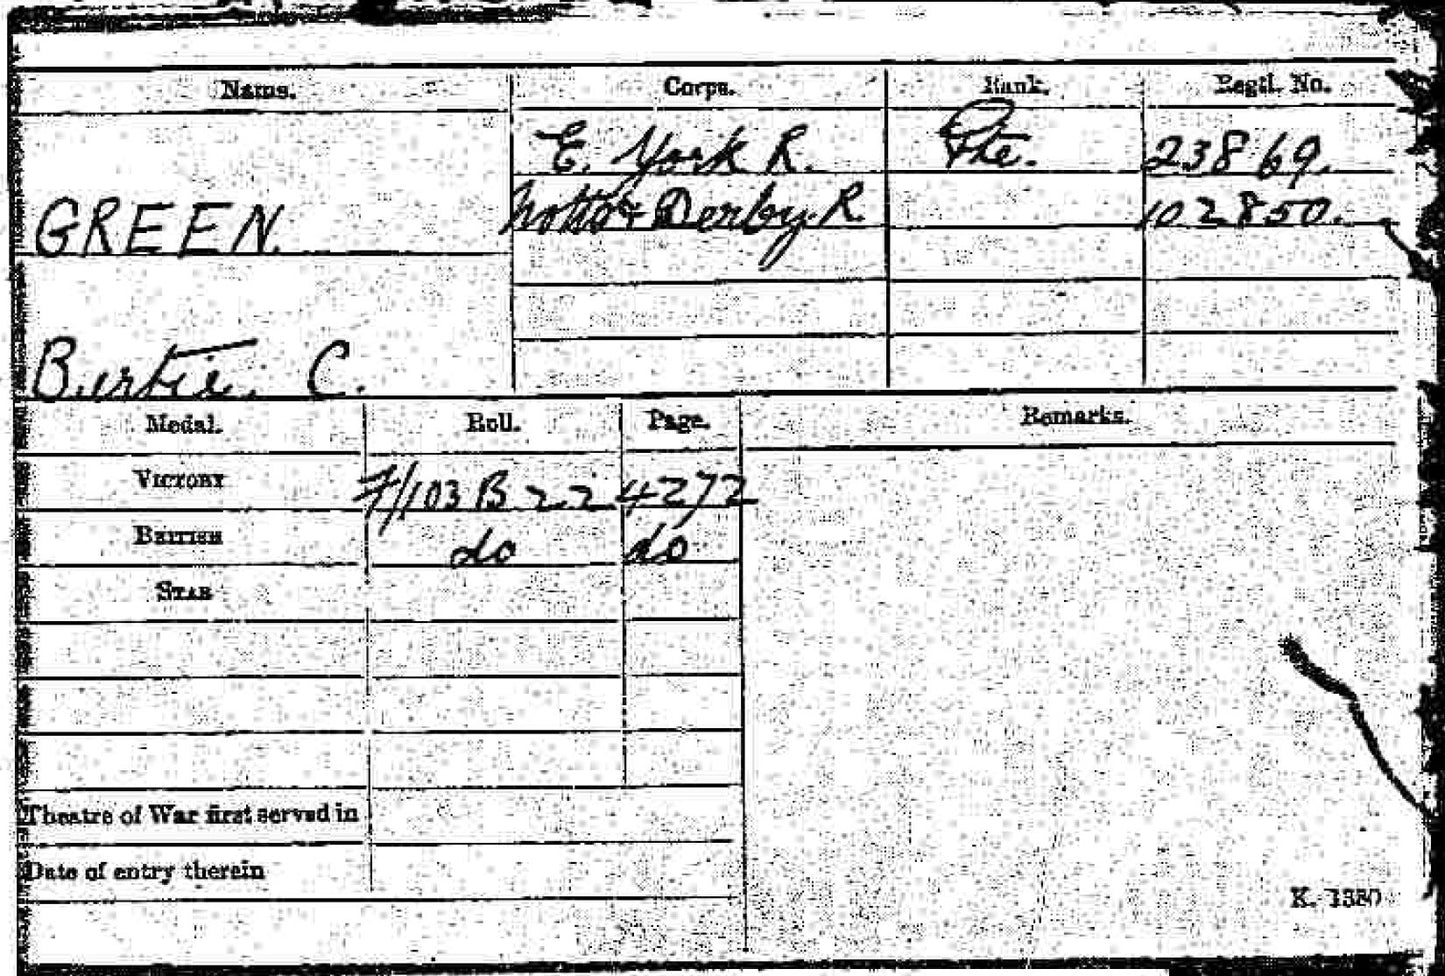 Name. Corps. Rank. Regtl. No.
E. York R. Pte. 23869.
GREEN. Notts & Derby. R. 102850.
Bertie. C.
Medal. Roll. Page. Remarks.
VICTORY F/103 B 22 4272
BRITISH do do
STAR
Theatre of War first served in
Date of entry therein
K. 1380